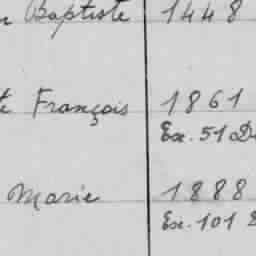 Baptiste 1448
François 1861
Ex. 51 D
Marie 1888
Ex. 101